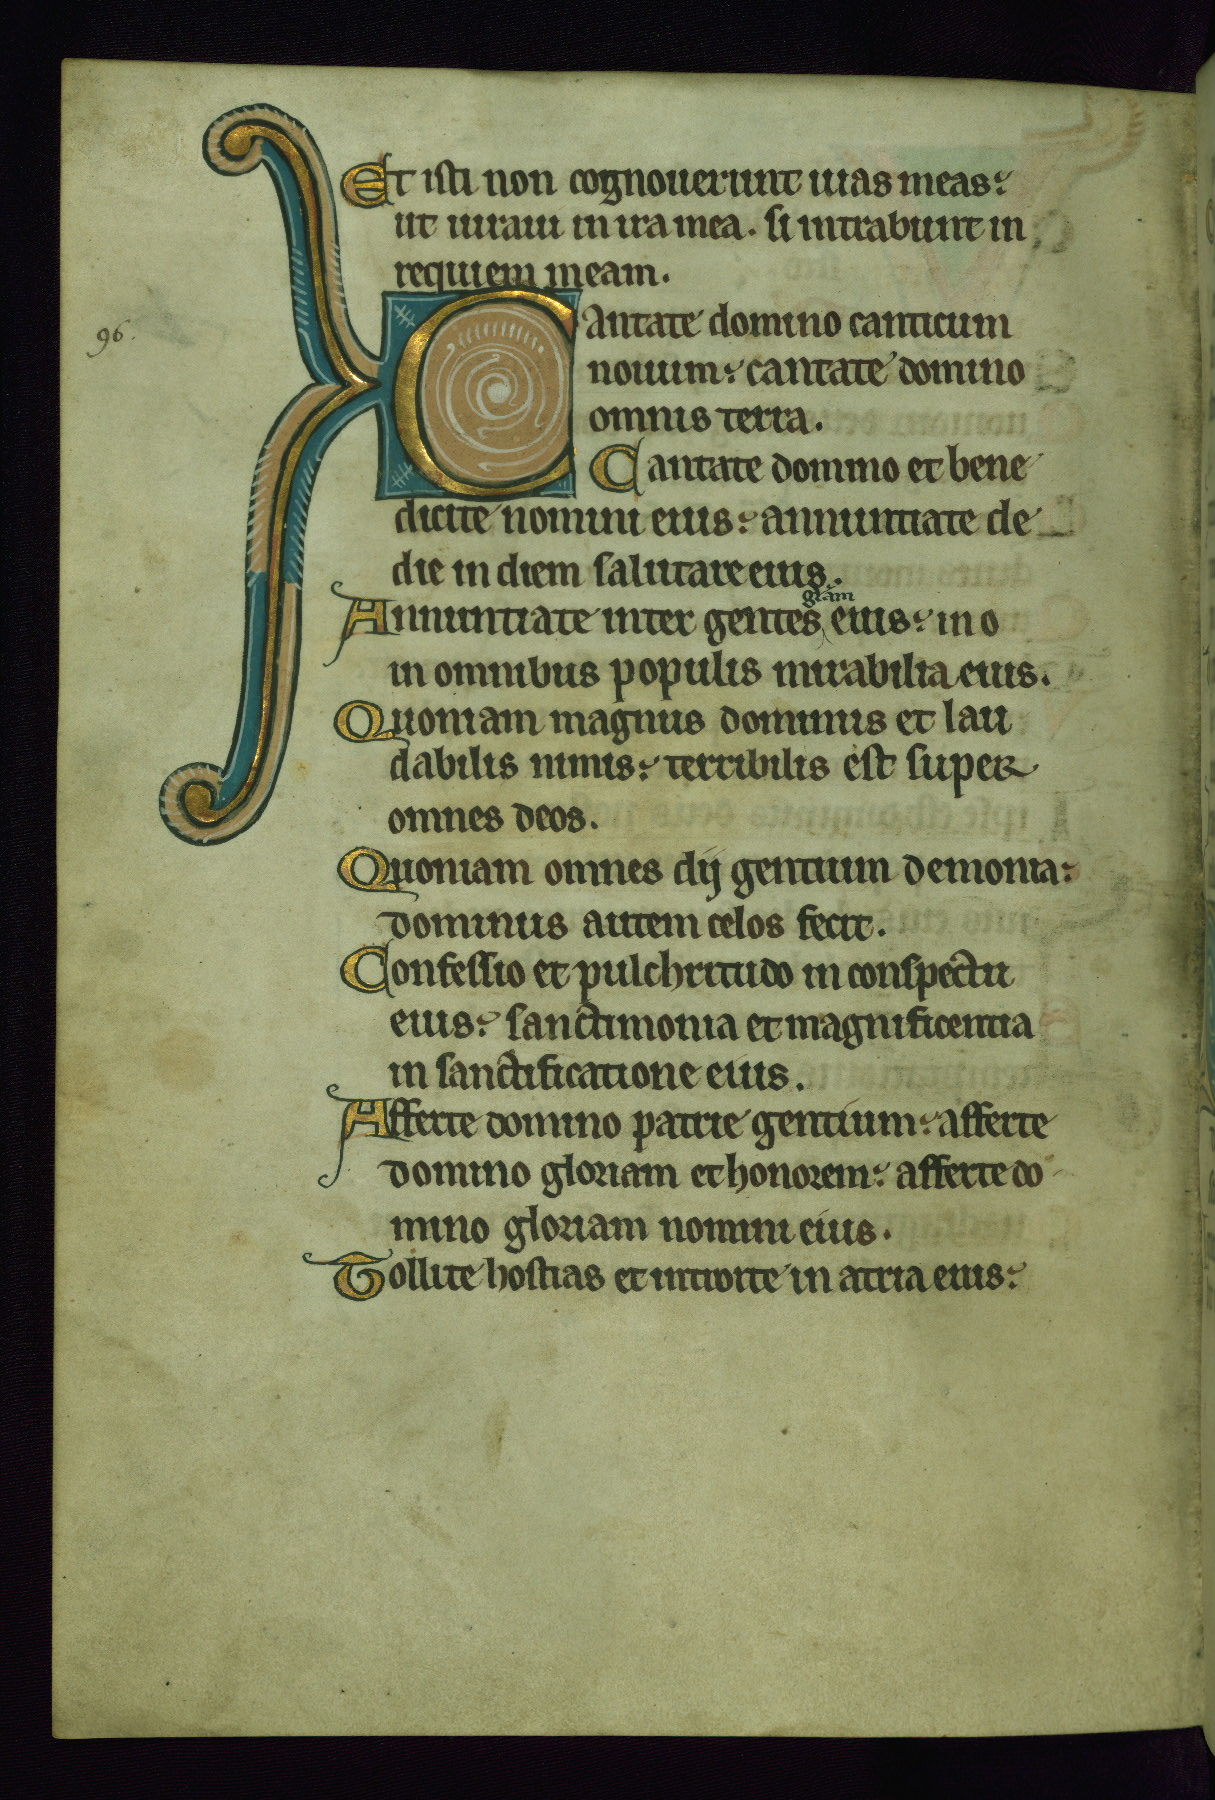 Et isti non cognouerunt uias meas:
ut iuraui in ira mea. si intrabunt in
requiem meam.
96.
Cantate domino canticum
nouum: cantate domino
omnis terra.
Cantate domino et bene
dicite nomini eius: annuntiate de
die in diem salutare eius.
glām
Annuntiate inter gentes eius: in o
in omnibus populis mirabilia eius.
Quoniam magnus dominus et lau
dabilis nimis: terribilis est super
omnes deos.
Quoniam omnes dij gentium demonia:
dominus autem celos fecit.
Confessio et pulchritudo in conspectu
eius: sanctimonia et magnificentia
in sanctificatione eius.
Afferte domino patrie gentium: afferte
domino gloriam et honorem: afferte do
mino gloriam nomini eius.
Tollite hostias et introite in atria eius: